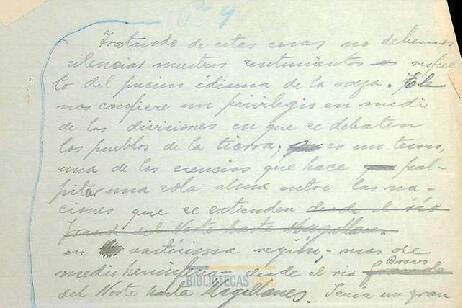 Nº 9
Tratando de estas cosas no debemos
silenciar nuestros sentimientos respec-
to del precioso idioma de la raza. Ello
nos confiere un privilegio en medio
de las divisiones en que se debaten
los pueblos de la tierra, es un tesoro,
una de las esencias que hace pal-
pitar una sola alma entre las na-
ciones que se extienden desde el río
Grande del Norte hasta Magallanes
en vastísima región, mas de
medio hemisferio desde el río Bravo
del Norte hasta Magallanes. Sería un gran
BIBLIOTECAS